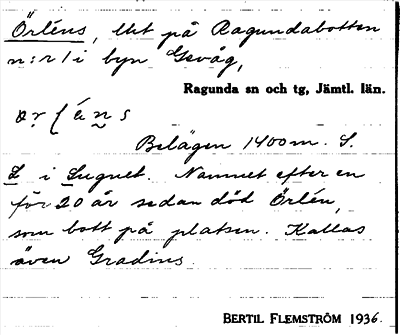 Örléns, lht på Ragundabotten
n:r 1 i byn Gevåg,
Ragunda sn och tg, Jämtl. län.
Belägen 1400 m. S.
S i Lugnet. Namnet efter en
för 20 år sedan död Örlén,
som bott på platsen. Kallas
även Gradins.
BERTIL FLEMSTRÖM 1936.